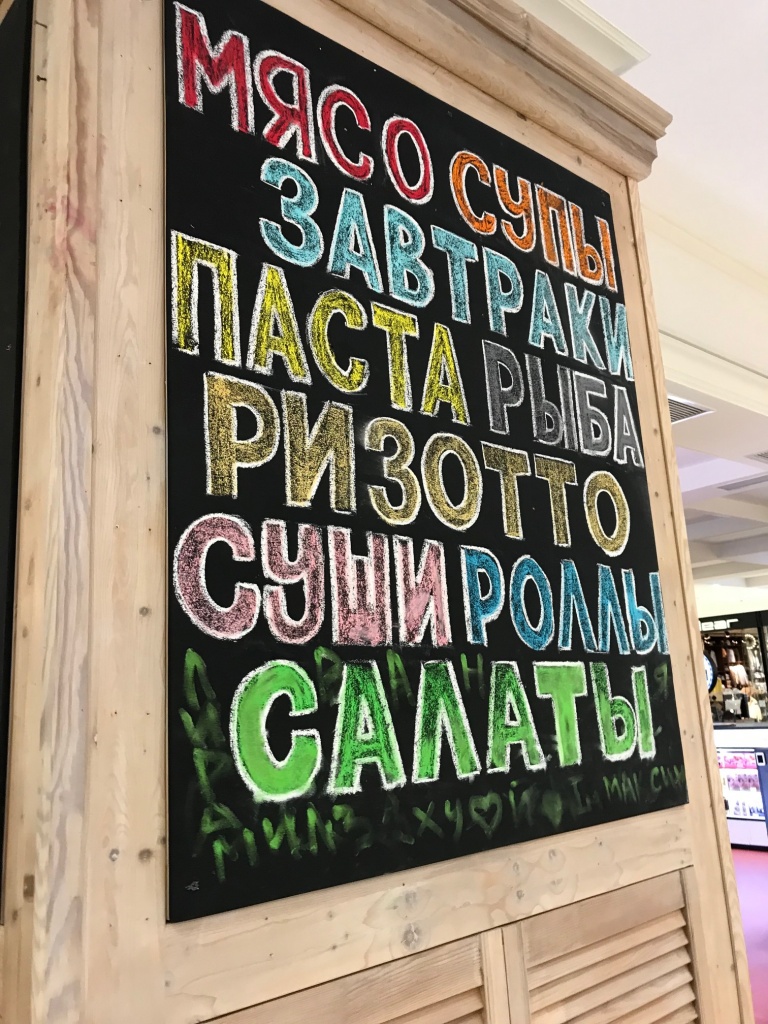 МЯСО СУПЫ
ЗАВТРАКИ
ПАСТА РЫБА
РИЗОТТО
СУШИ РОЛЛЫ
САЛАТЫ